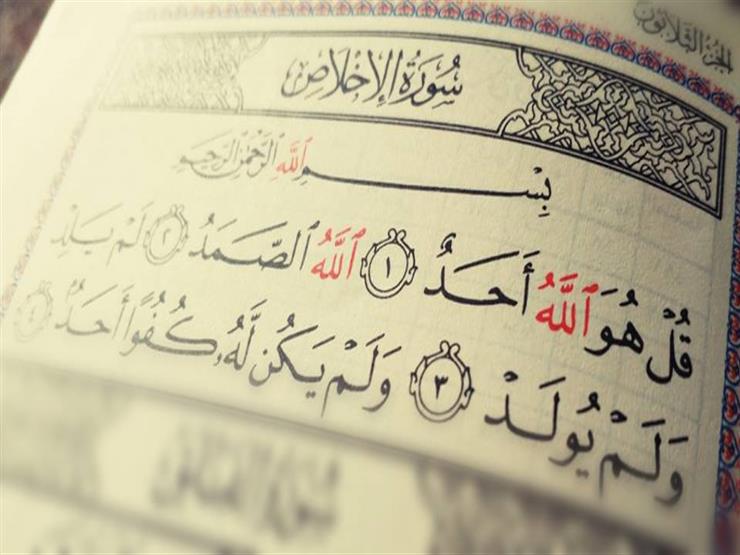 الجزء الثلاثون
سُورَةُ الإِخْلَاصِ
بِسْمِ ٱللَّهِ ٱلرَّحْمَٰنِ ٱلرَّحِيمِ
قُلْ هُوَ ٱللَّهُ أَحَدٌ ١ ٱللَّهُ ٱلصَّمَدُ ٢ لَمْ يَلِدْ
وَلَمْ يُولَدْ ٣ وَلَمْ يَكُن لَّهُۥ كُفُوًا أَحَدٌۢ ٤
سورة الفلق